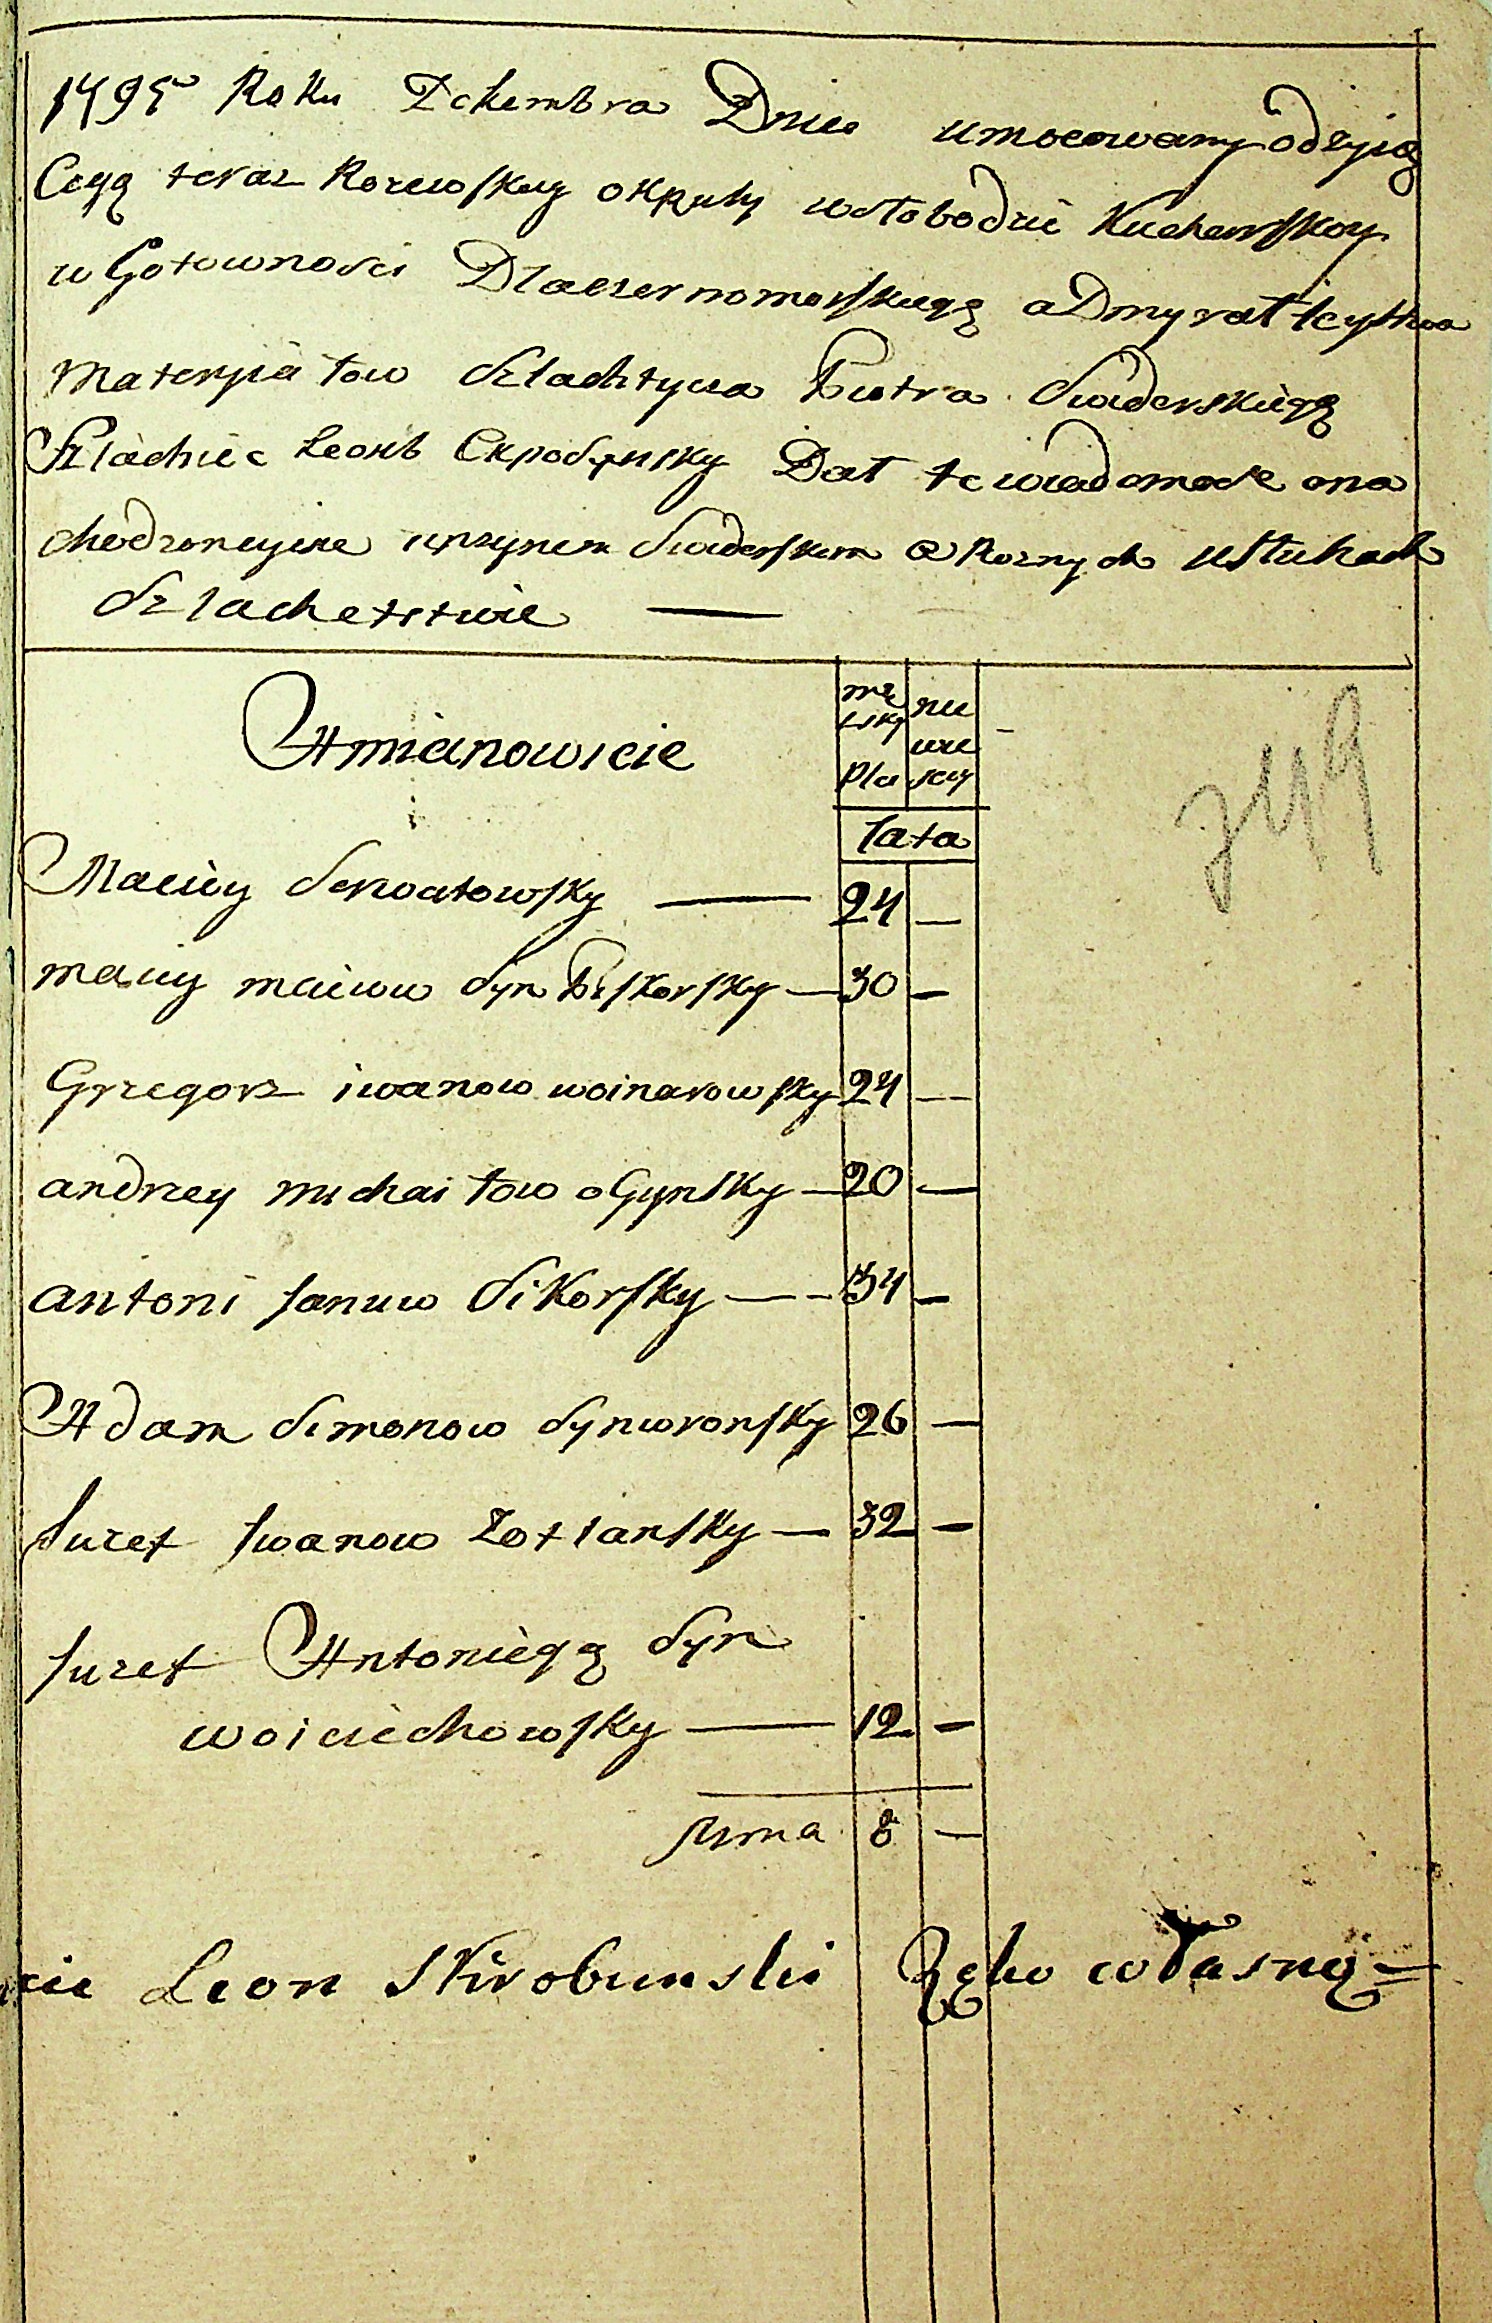 1795 Roku Dekembra Dnia umocowany odzyią
Cegą teraz Korewskey okruhy wstobodzie Kucherskoy
w Gotownosci Dlaczernomorskiegą aDmyraltcystwa
Materyiałow Szlachtycia Piotra Swiderskiegą
Szlachcic Leonb Скробунsky Dał te wiadomosc ona
chodzoncyiese uprzynem Swiderskem o Roznych usłuhach
Szlachetstwie —
Amianowicie
mę nie
skey wie
płci sciy
lata
Maciey Senoatowsky — 24 —
maciy maciuw Syn Piskorsky — 30 —
Grzegorz iwanow woinarowsky 24 —
andrzey michaiłow oGynsky — 20 —
antoni Januw Sikorsky — 34 —
Adam Simonow Synwronsky 26 —
Iuzef Iwanow Zotlansky — 32 —
Iuzef Antoniegą Syn
woiciechowsky — 12 —
suma 8 —
Leon Skrobunski Ręko własną